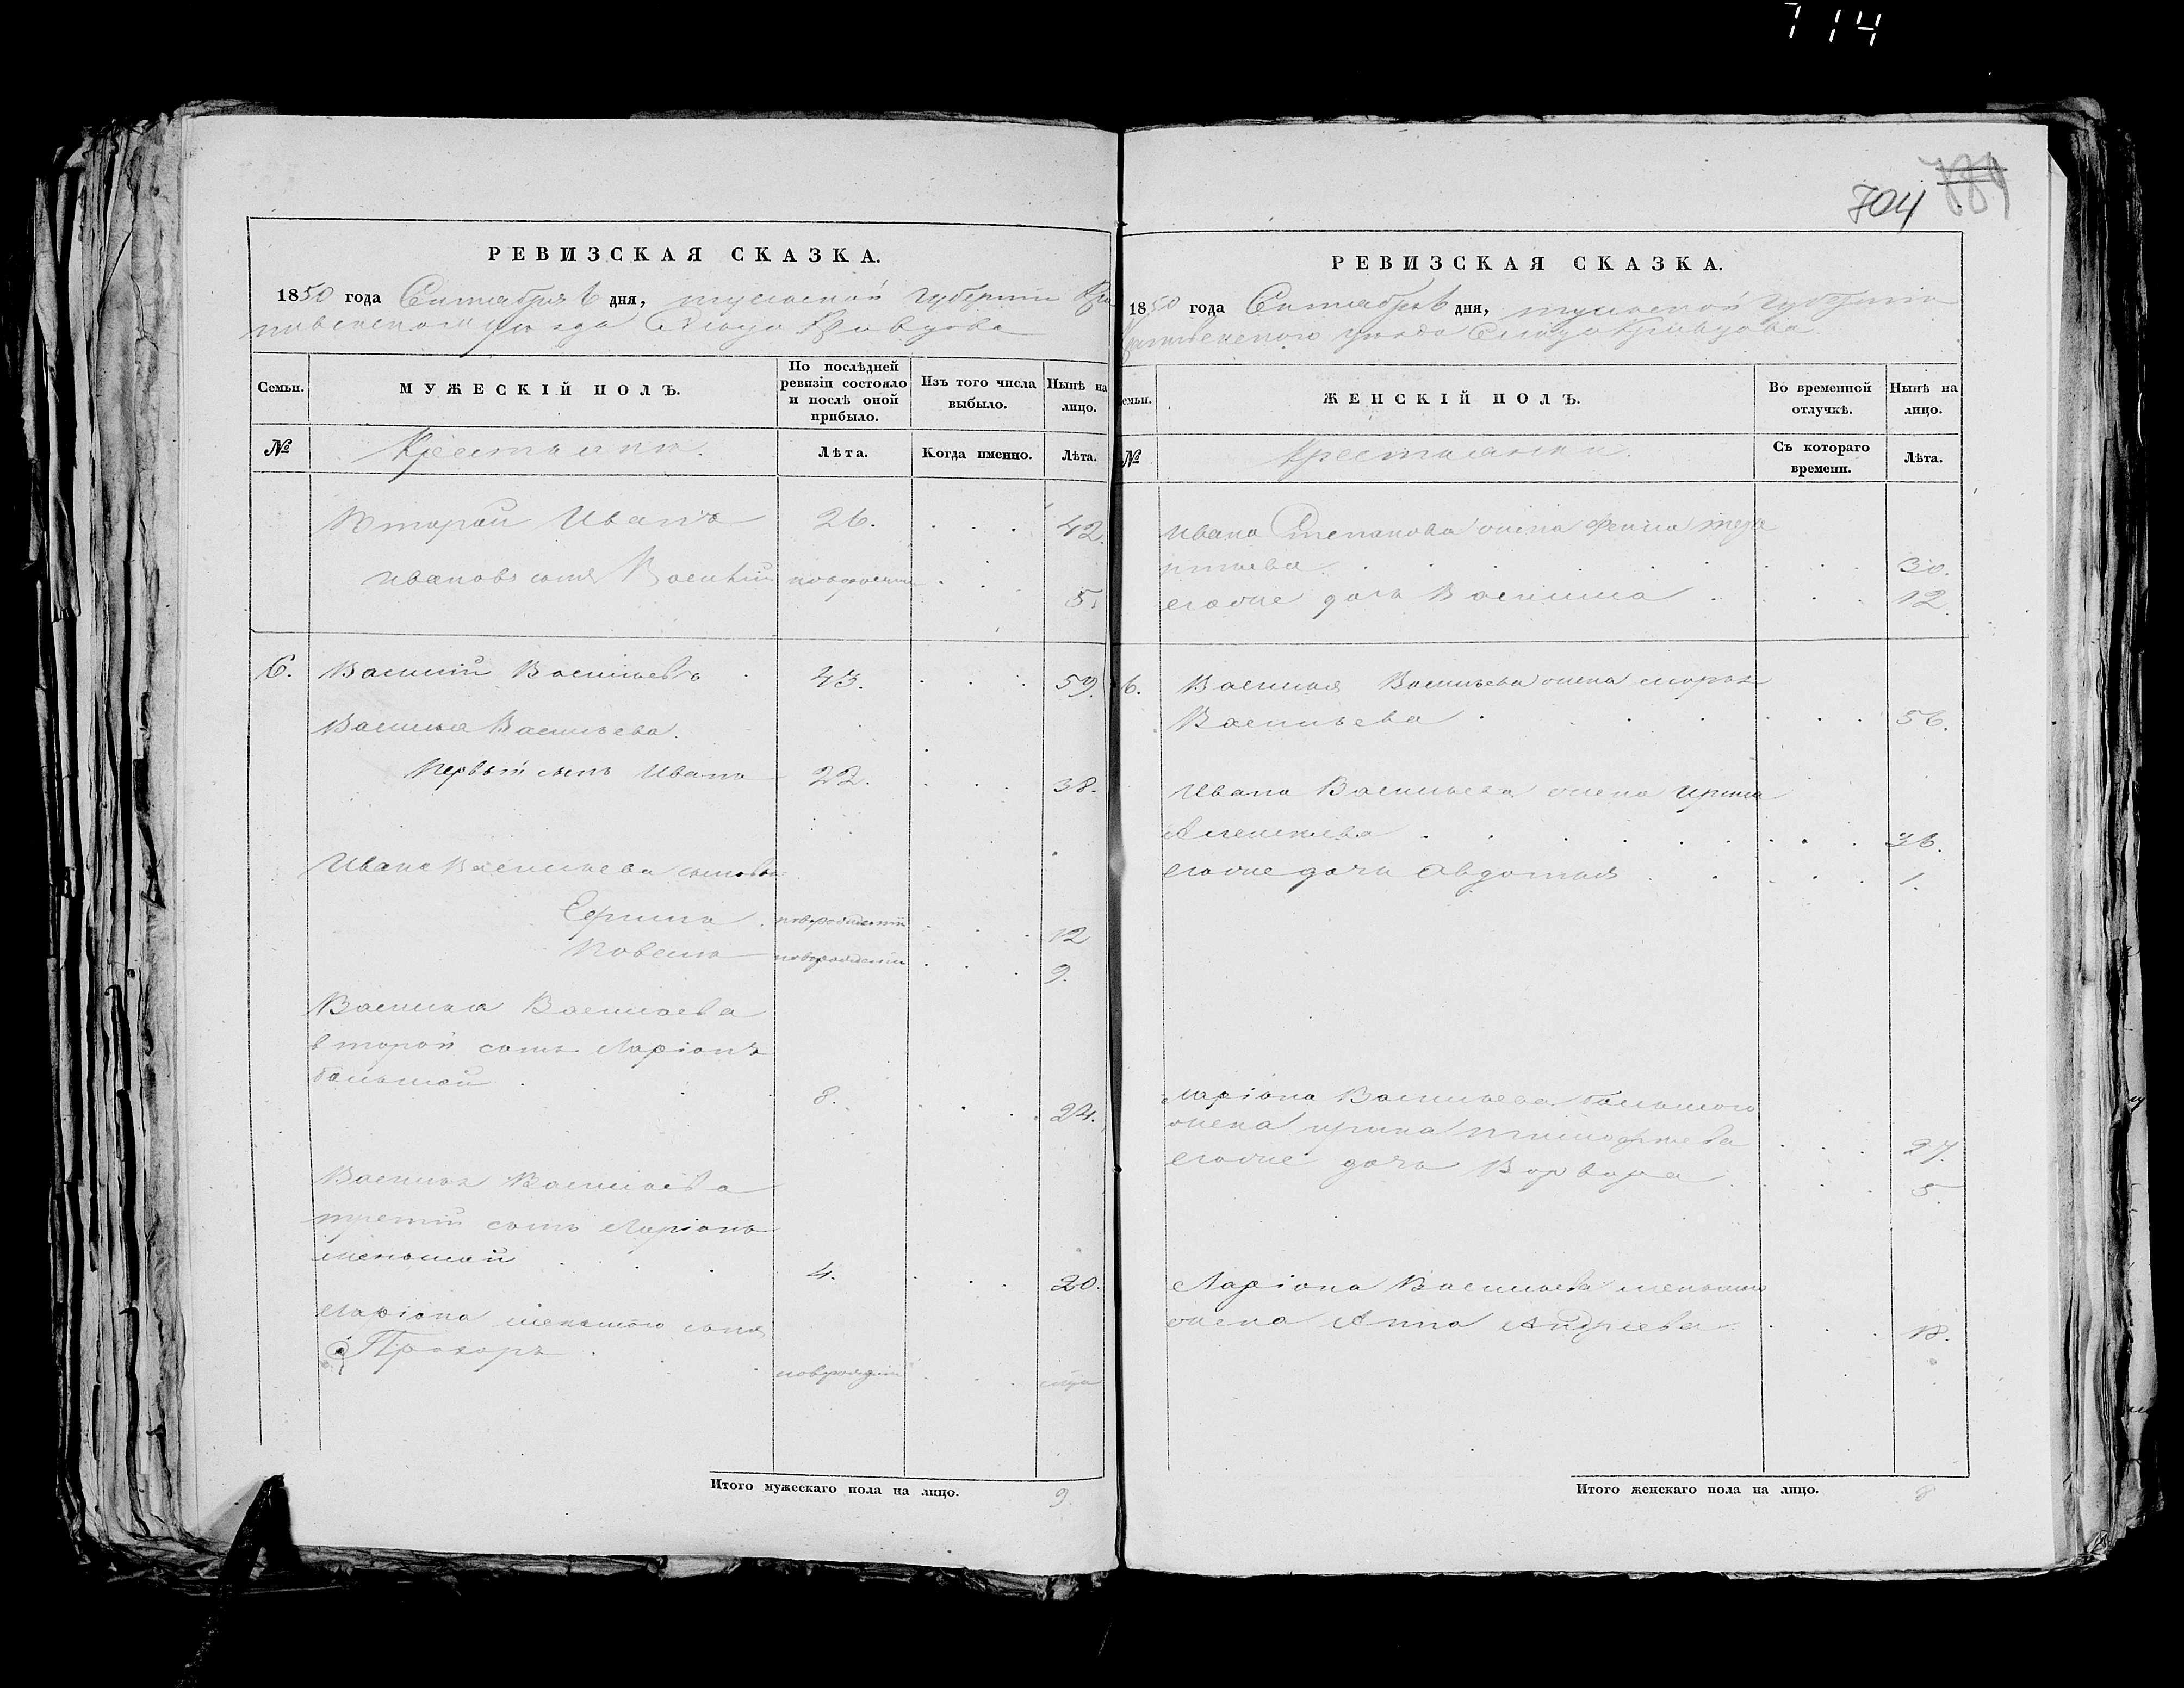 714
704
РЕВИЗСКАЯ СКАЗКА.
1850 года Сентября 6 дня, тульской губернии Кра
пивенскаго уезда Сельца Кривцова
Семьи.
МУЖЕСКІЙ ПОЛЪ.
По послѣдней ревизіи состояло и послѣ оной прибыло.
Изъ того числа выбыло.
Нынѣ на лицо.
№
Крестьяни.
Лѣта.
Когда именно.
Лѣта.
Второй Иванъ 26. 42.
Ивановъ сынъ новорожден 5.
6. Василий Васильевъ 43. 59.
Василья Васильева.
Первый сынъ Иванъ 22. 38.
Ивана Васильева сыновья
новорожденни 12
новорожденни 9.
Василья Васильева
второй сынъ Ларіонъ
большой 8. 24.
Василья Васильева
третий сынъ Ларіонъ
меньшой 4. 20.
Ларіона меньшого сынъ
Прохоръ
Итого мужескаго пола на лицо. 9
РЕВИЗСКАЯ СКАЗКА.
1850 года Сентября 6 дня, тульской губерніи
Крапивенского уезда Сельца Кривцова.
Семьи.
ЖЕНСКІЙ ПОЛЪ.
Во временной отлучкѣ.
Нынѣ на лицо.
№
Крестьянки.
Съ котораго времени.
Лѣта.
Ивана Степанова жена
30.
еговже дочь Василиса 12.
6. Василья Васильева жена
Васильева 56.
Ивана Васильева жена Ирина
Алексеева 36.
еговже дочь Авдотья 1.
Ларіона Васильева большого
жена Ирина Тимофеева 27.
еговже дочь Варвара 5.
Ларіона Васильева меньшого
жена Анна Андреева 18.
Итого женскаго пола на лицо. 8